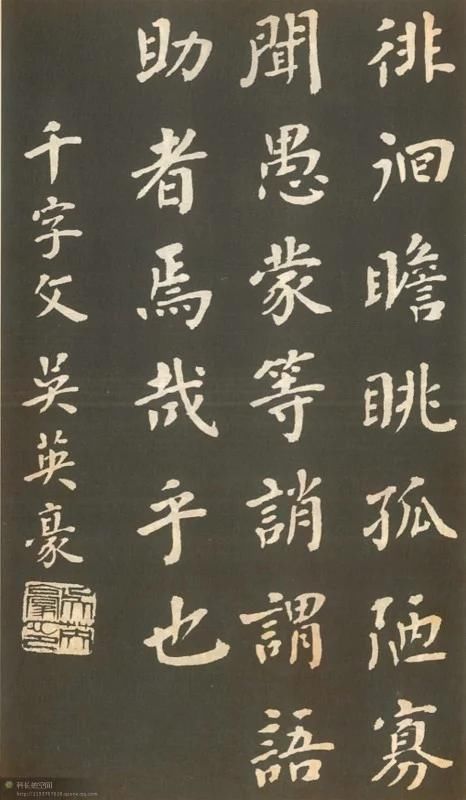 徘徊瞻眺孤陋寡
聞愚蒙等誚謂語
助者焉哉乎也
千字文 吳英豪
科长的空间